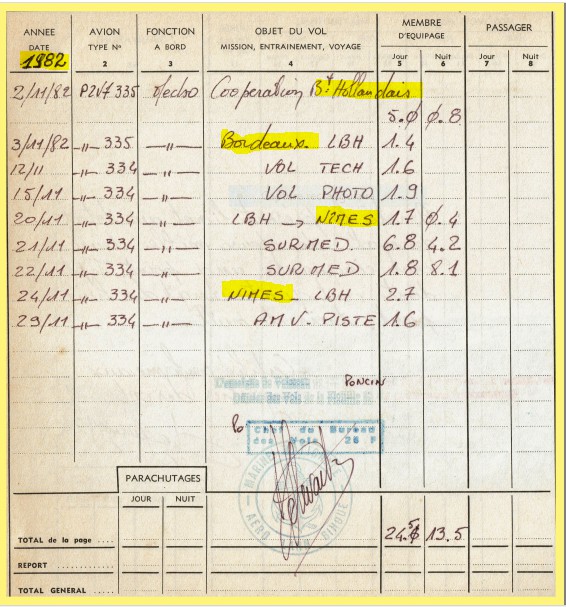 ANNEE AVION FONCTION OBJET DU VOL MEMBRE D'EQUIPAGE PASSAGER
DATE TYPE N° A BORD MISSION, ENTRAINEMENT, VOYAGE Jour Nuit Jour Nuit
1982 2 3 4 5 6 7 8
2/11/82 P2V7 335 Mecbo Cooperation Bt Hollandais
5.0 0.8
3/11/82 -"- 335 -"- Bordeaux. LBH 1.4
12/11 -"- 334 -"- VOL TECH 1.6
15/11 -"- 334 -"- VOL PHOTO 1.9
20/11 -"- 334 -"- LBH → NIMES 1.7 0.4
21/11 -"- 334 -"- SURMED. 6.8 4.2
22/11 -"- 334 -"- SURMED 1.8 8.1
24/11 -"- 334 -"- NIMES - LBH 2.7
29/11 -"- 334 -"- AMV. PISTE 1.6
PONCIN
Po
Chef du Bureau
des Vols 25 F
PARACHUTAGES
JOUR NUIT
TOTAL de la page 13.5
REPORT
TOTAL GENERAL